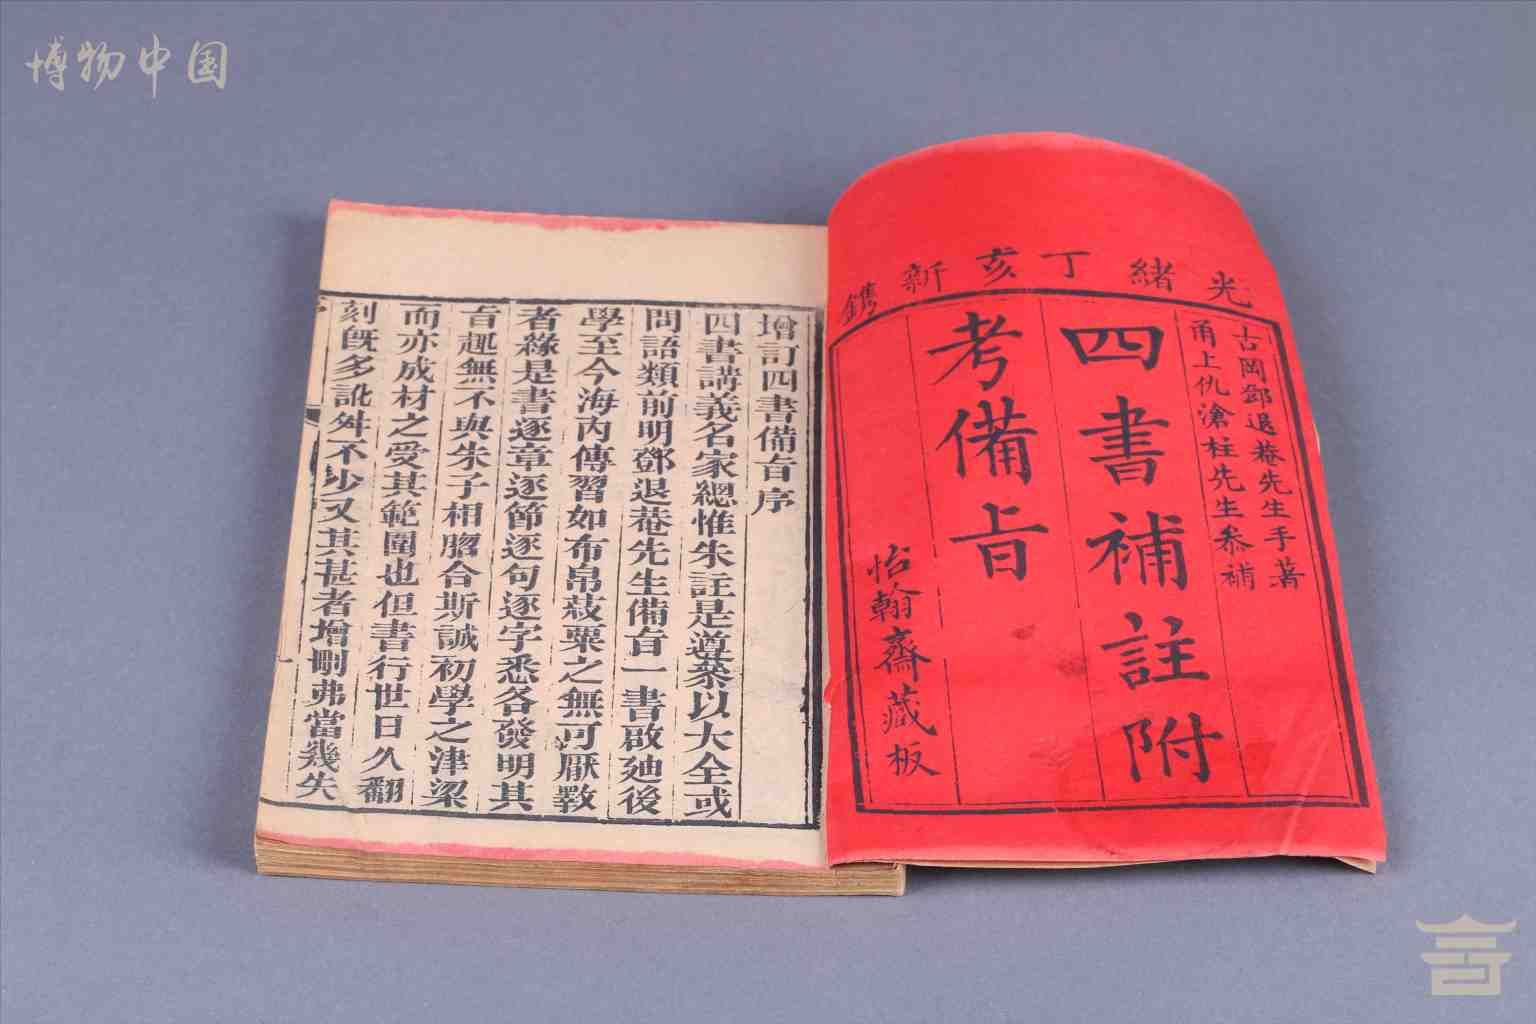 博物中国
光緒丁亥新鐫
古岡鄧退菴先生手著
甬上仇滄柱先生叅補
四書補註附
考備旨
怡翰齋藏板
增訂四書備旨序
四書講義名家總惟朱註是遵蒙以大全或
問語類前明鄧退菴先生備旨一書啟廸後
學至今海內傳習如布帛菽粟之無可厭斁
者緣是書逐章逐節逐句逐字悉各發明其
旨趣無不與朱子相脗合斯誠初學之津梁
而亦成材之受其範圍也但書行世日久翻
刻旣多訛舛不少又其甚者增刪弗當幾失